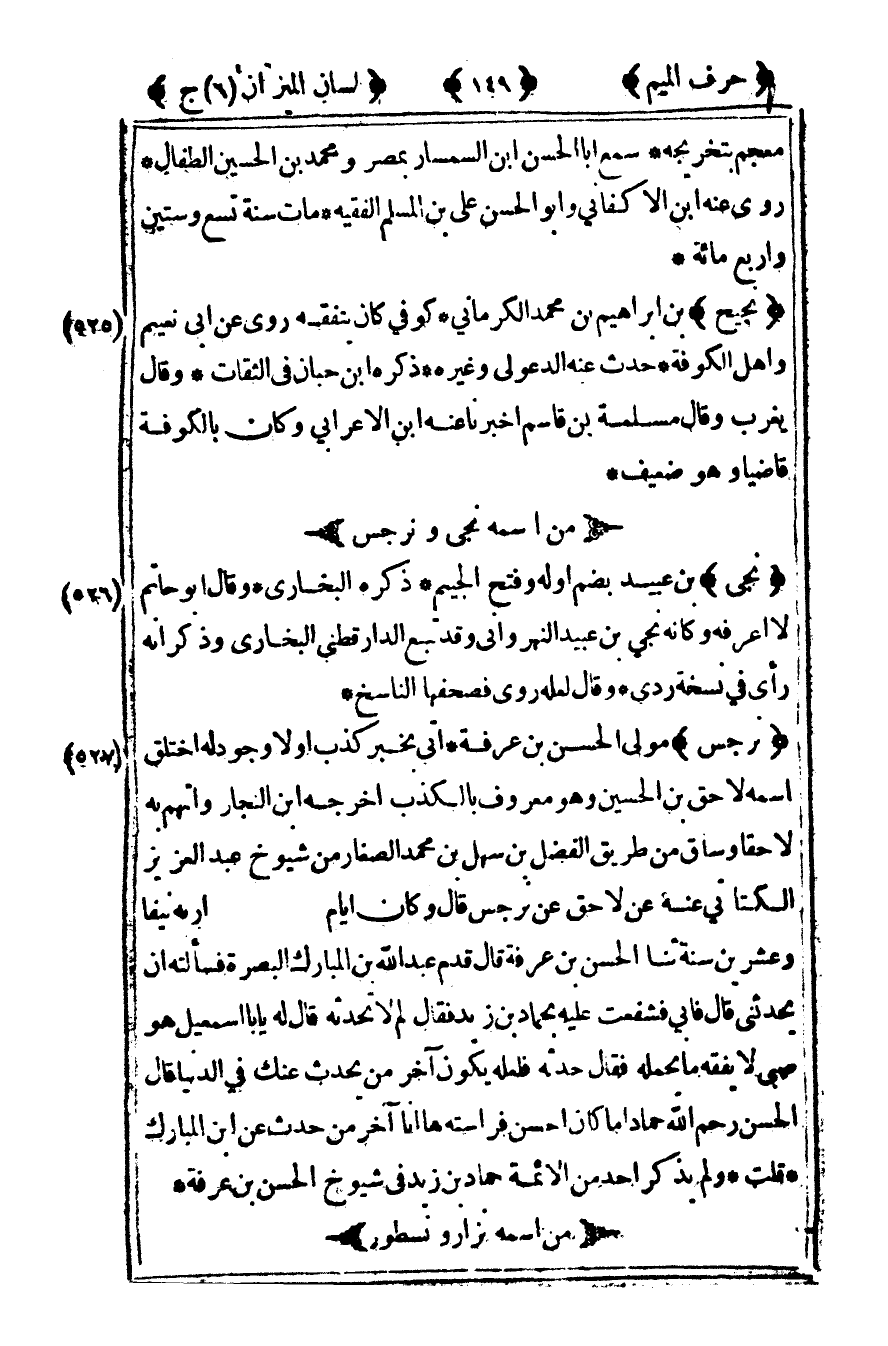 ﴿ حرف الميم ﴾ ﴿ ١٤٩ ﴾ ﴿ لسان الميزان (٦) ج ﴾
معجم بتخريجه * سمع ابا الحسن ابن السمسار بمصر و محمد بن الحسين الطفال *
روى عنه ابن الاكفاني وابو الحسن على بن المسلم الفقيه * مات سنة تسع وستين
واربع مائة *
﴿ نجيح ﴾ بن ابراهيم بن محمد الكرماني * كوفي كان يتفقه روى عن ابى نعيم (٥٢٥)
واهل الكوفة * حدث عنه الدعولى وغيره * ذكره ابن حبان فى الثقات * وقال
يغرب وقال مسلمة بن قاسم اخبرنا عنه ابن الاعرابي وكان بالكوفة
قاضيا و هو ضعيف *
﴿ من اسمه نجى و نرجس ﴾
﴿ نجى ﴾ بن عبيد بضم اوله وفتح الجيم * ذكره البخارى * وقال ابو حاتم (٥٢٦)
لا اعرفه وكانه نجي بن عبيد النهروانى وقد تبع الدارقطني البخارى وذكر انه
رأى في نسخة ردى * وقال لعله روى فصحفها الناسخ *
﴿ نرجس ﴾ مولى الحسن بن عرفة * اتى بخبر كذب اولا وجود له اختلق (٥٢٧)
اسمه لاحق بن الحسين وهو معروف بالكذب اخرجه ابن النجار واتهم به
لاحقا وساق من طريق الفضل بن سهل بن محمد الصفار من شيوخ عبد العزيز
الكتاني عنه عن لاحق عن نرجس قال وكان ايام نيفا
وعشرين سنة ثنا الحسن بن عرفة قال قدم عبد الله بن المبارك البصرة فسألته ان
يحدثنى قال فابي فشفعت عليه بحماد بن زيد فقال لم لا تحدثه قال له يا با اسمعيل هو
صبى لا يفقه ما يحمله فقال حدثه فلعله يكون آخر من يحدث عنك في الدنيا قال
الحسن رحم الله حمادا ما كان احسن فراسته ها انا آخر من حدث عن ابن المبارك
* قلت * ولم يذكر احد من الائمة حماد بن زيد فى شيوخ الحسن بن عرفة *
﴿ من اسمه نزار و نسطور ﴾